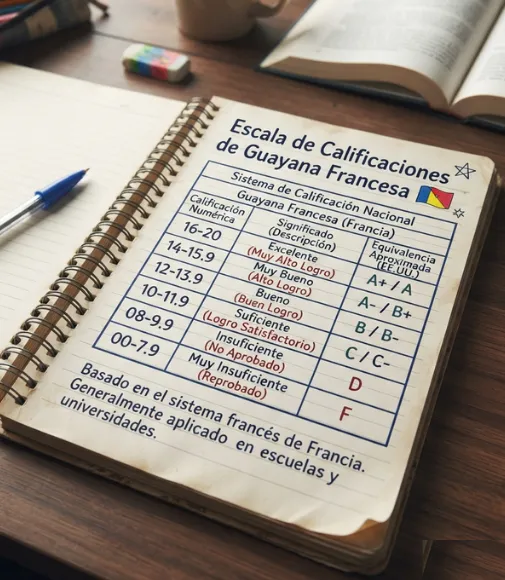 Escala de Calificaciones
de Guayana Francesa
Sistema de Calificación Nacional
Guayana Francesa (Francia)
Calificación Numérica
Significado (Descripción)
Equivalencia Aproximada (EE.UU.)
16-20
Excelente (Muy Alto Logro)
A+ / A
14-15.9
Muy Bueno (Alto Logro)
A- / B+
12-13.9
Bueno (Buen Logro)
B / B-
10-11.9
Suficiente (Logro Satisfactorio)
C / C-
08-9.9
Insuficiente (No Aprobado)
D
00-7.9
Muy Insuficiente (Reprobado)
F
Basado en el sistema francés de Francia.
Generalmente aplicado en escuelas y
universidades.